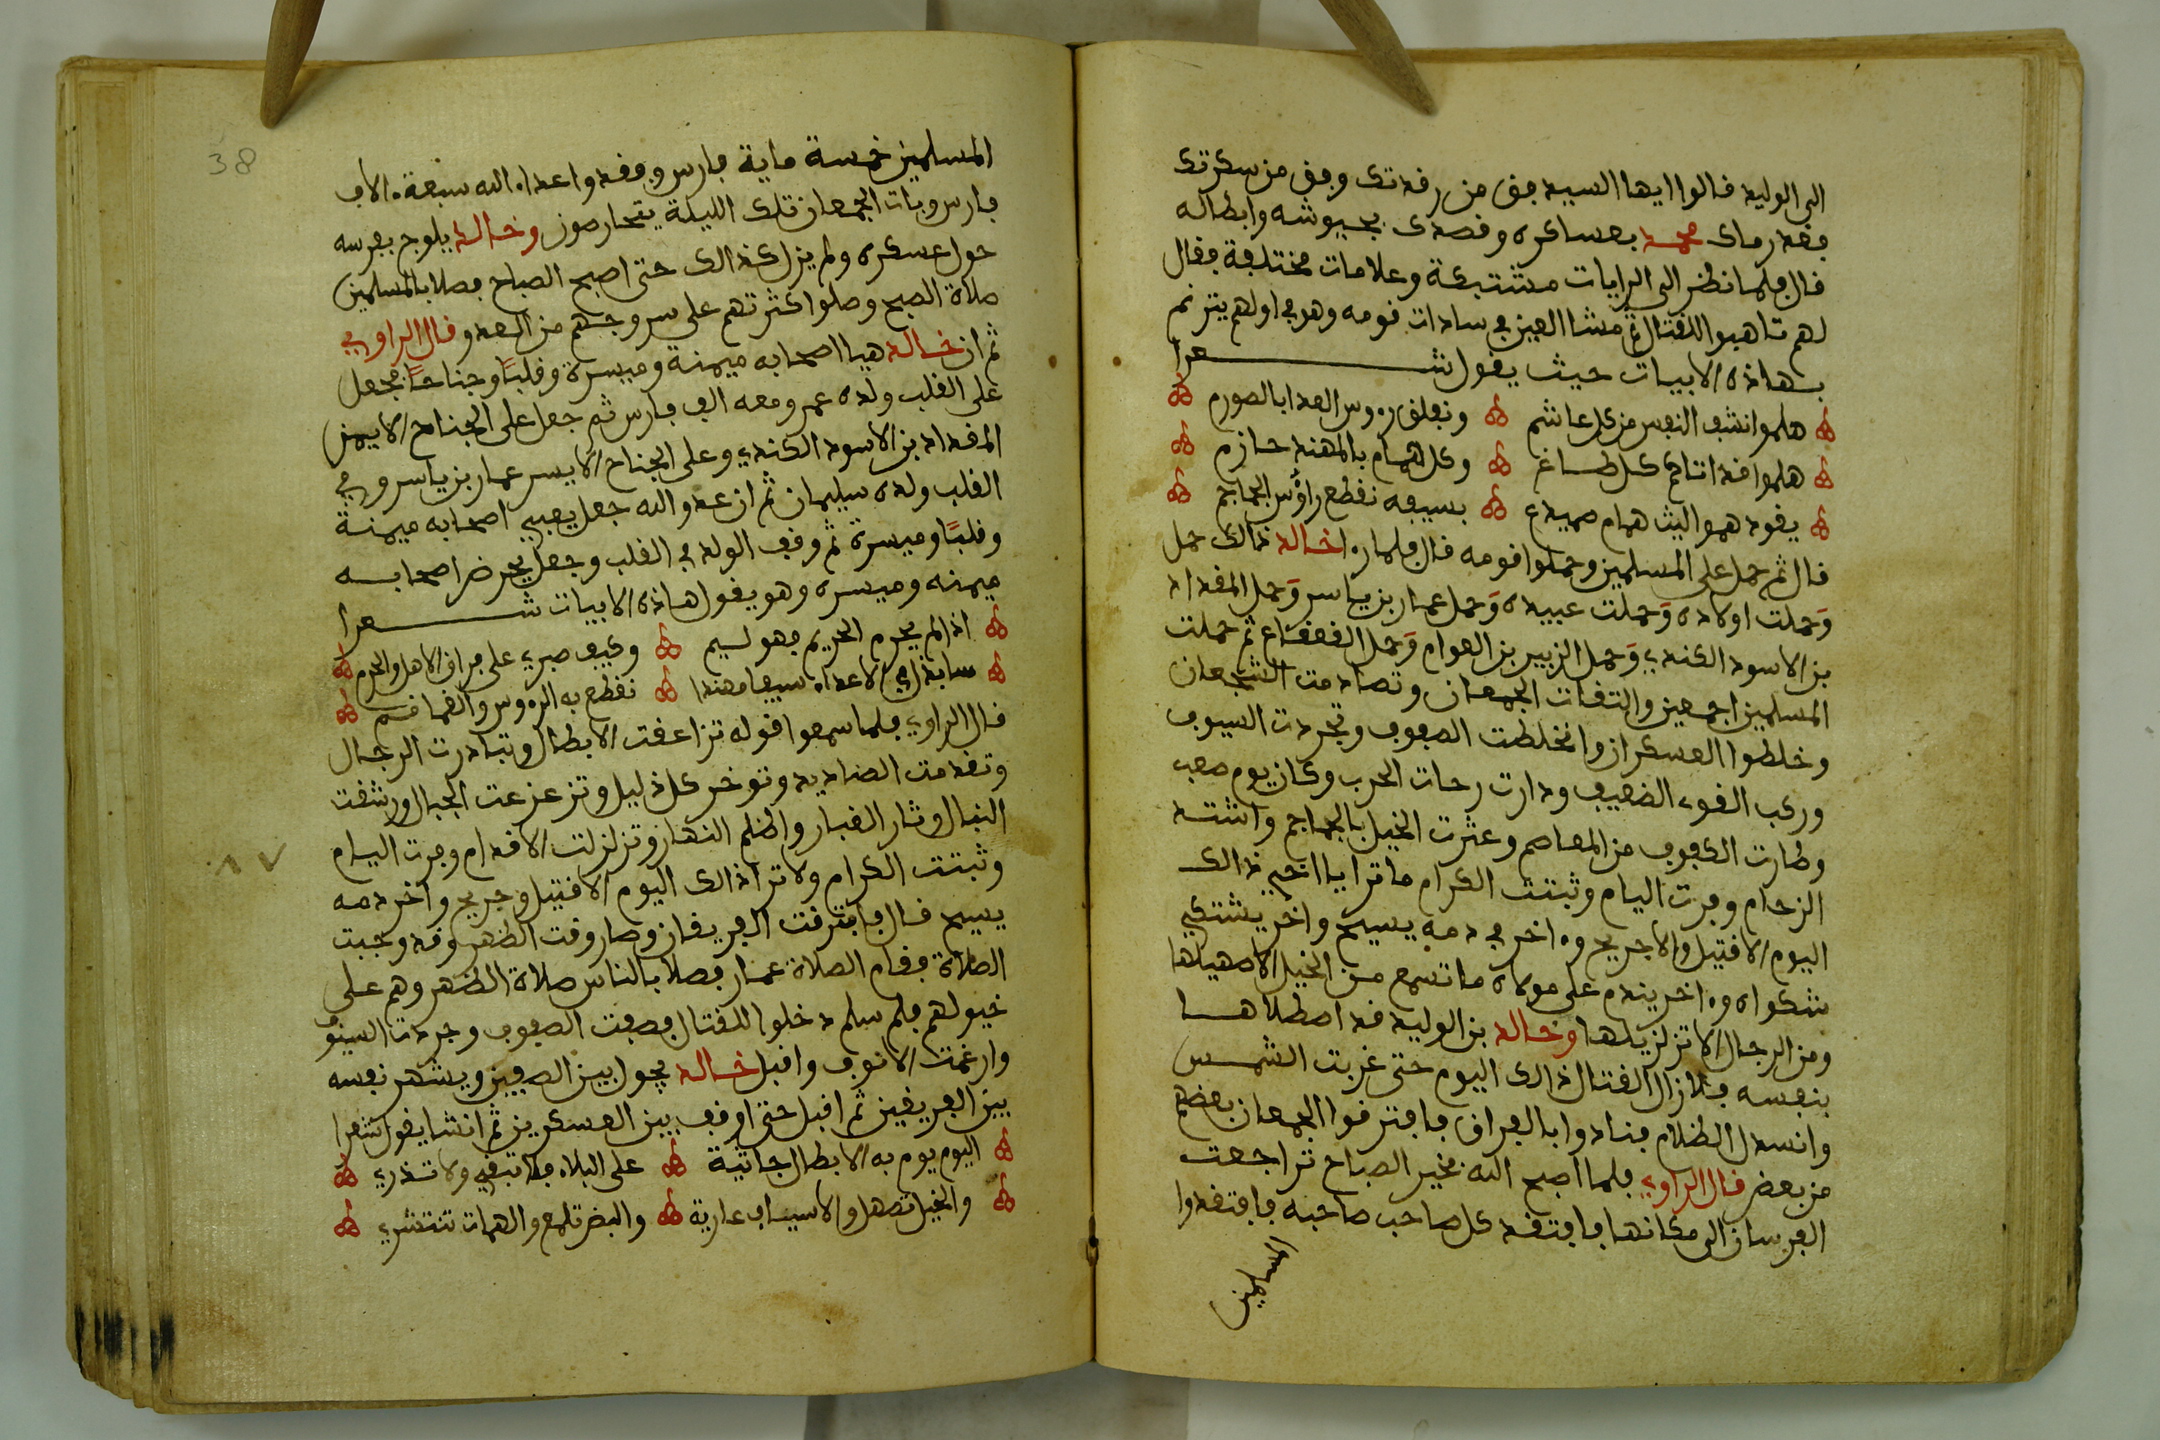 الى الوليد فالوا ايها السيد فق من رفدتك وفق من سكرتك
فقد رماك محمد بعساكره وفصدك بجيوشه وابطاله
فال فلما نظر الى الرايات مشتبكة وعلامات مختلفة ففال
لهم تاهبوا للفتال ثم مشا العين في سادات فومه وهو في اولهم يترنم
بهاذه الابيات حيث يفول شعرا
هلموا نشف النفس من كل غاشم ونعلق رءوس العدا بالصورم
هلموا فد اتاكم كل طاغ وكل همام بالمهند حازم
يفود هموا ليث همام صميدع بسيفه نفطع راؤس الجماجم
فال ثم حمل على المسلمين وحملوا فومه فال فلما راا خالد ذالك حمل
وحملت اولاده وحملت عبيده وحمل عمار بن ياسر وحمل المفداد
بن الاسود الكندي وحمل الزبير بن العوام وحمل الفعفاع ثم حملت
المسلمين اجمعين والتفات الجمعان وتصادمت الشجعان
وخلطوا العسكران وانخلطت الصفوف وتجردت السيوف
وركب الفوي الضعيف ودارت رحات الحرب وكان يوم صعب
وطارت الكفوف من المعاصم وعثرت الخيل بالجماجم واشتد
الزحام وفرت اليام وثبتت الكرام ما ترا يا اخي ذالك
اليوم الا فتيل والا جريح وءاخر في دمه يسيح واخر يشتكي
شكواه وءاخر يندم على مولاه ما تسمع من الخيل الا صهيلها
ومن الرجال الا تزلزيلها وخالد بن الوليد فد اصطلاها
بنفسه فلا زال الفتال ذالك اليوم حتى غربت الشمس
وانسدل الظلام فنادوا بالفراق فافترفوا الجمعان بعضهم
من بعض فال الراوي فلما اصبح الله بخير الصباح تراجعت
الفرسان الى مكانها فافتفد كل صاحب صاحبه فافتفدوا
المسلمين
38
المسلمين خمسة ماية فارس وففد واعداء الله سبعة ءالاف
فارس وبات الجمعان تلك الليلة يتحارصون وخالد يلوج بفرسه
حول عسكره ولم يزل كذالك حتى اصبح الصباح فصلا بالمسلمين
صلاة الصبح وصلوا كثرتهم على سروجهم من العدو فال الراوي
ثم ان خالد هيا اصحابه ميمنة وميسرة وفلبا وجناحا فجعل
على الفلب ولده عمر ومعه الف فارس ثم جعل على الجناح الايمن
المفداد بن الاسود الكندي وعلى الجناح الايسر عمار بن ياسر وفي
الفلب ولده سليمان ثم ان عدو الله جعل يعبي اصحابه ميمنة
وفلبا وميسرة ثم وفف الولد في الفلب وجعل يحرض اصحابه
ميمنه وميسره وهو يفول هاذه الابيات شعرا
اذا لم يحرم الحريم فهو لسيم وكيف صبري على فراق الاهل والحرم
سابذل في الاعداء سيفا مهندا نفطع به الرءوس والفمافم
فال الراوي فلما سمعوا فوله تزاعفت الابطال وتبادرت الرجال
وتفدمت الصناديد وتوخر كل ذليل وتزعزعت الجبال ورشفت
النبال وثار الغبار واظلم النهار وتزلزلت الافدام وفرت اليام
وثبتت الكرام ولا ترا ذالك اليوم الا فتيل وجريح واخر دمه
يسيح فال فافترفت الفريفان وصار وفت الظهر وفد وجبت
الصلاة ففام الصلاة عمار فصلا بالناس صلاة الظهر وهم على
خيولهم فلم سلم دخلوا للفتال فصفت الصفوف وجردت السيوف
وارغمت الانوف وافبل خالد يجول بين الصفين ويشهر نفسه
بين الفريفين ثم افبل حتى اوفف بين العسكرين ثم انشا يفول شعرا
اليوم يوم به الابطال جاثية على البلاء فلا تبفي ولا تذري
والخيل تصهل والاسياف عارية والبض تلمع والهمات تنتثري